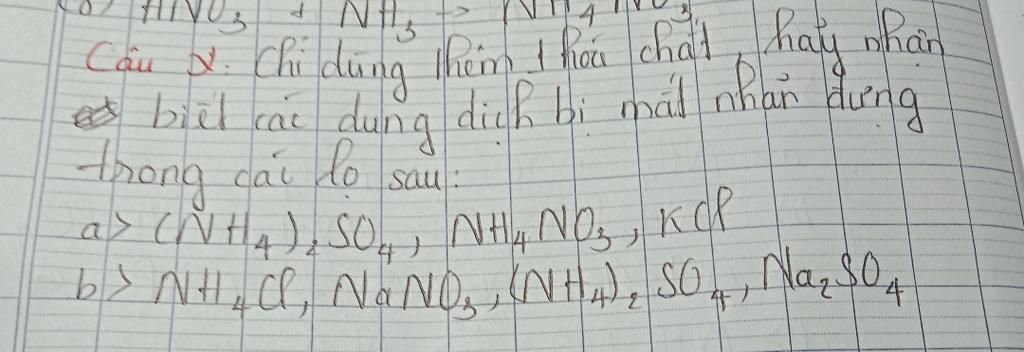 HNO3 + NH3 → NH4NO3
Câu X: Chỉ dùng thêm 1 hóa chất, hãy nhận
biết các dung dịch bị mất nhãn đựng
trong các lọ sau:
a> (NH4)2SO4, NH4NO3, KCl
b> NH4Cl, NaNO3, (NH4)2SO4, Na2SO4